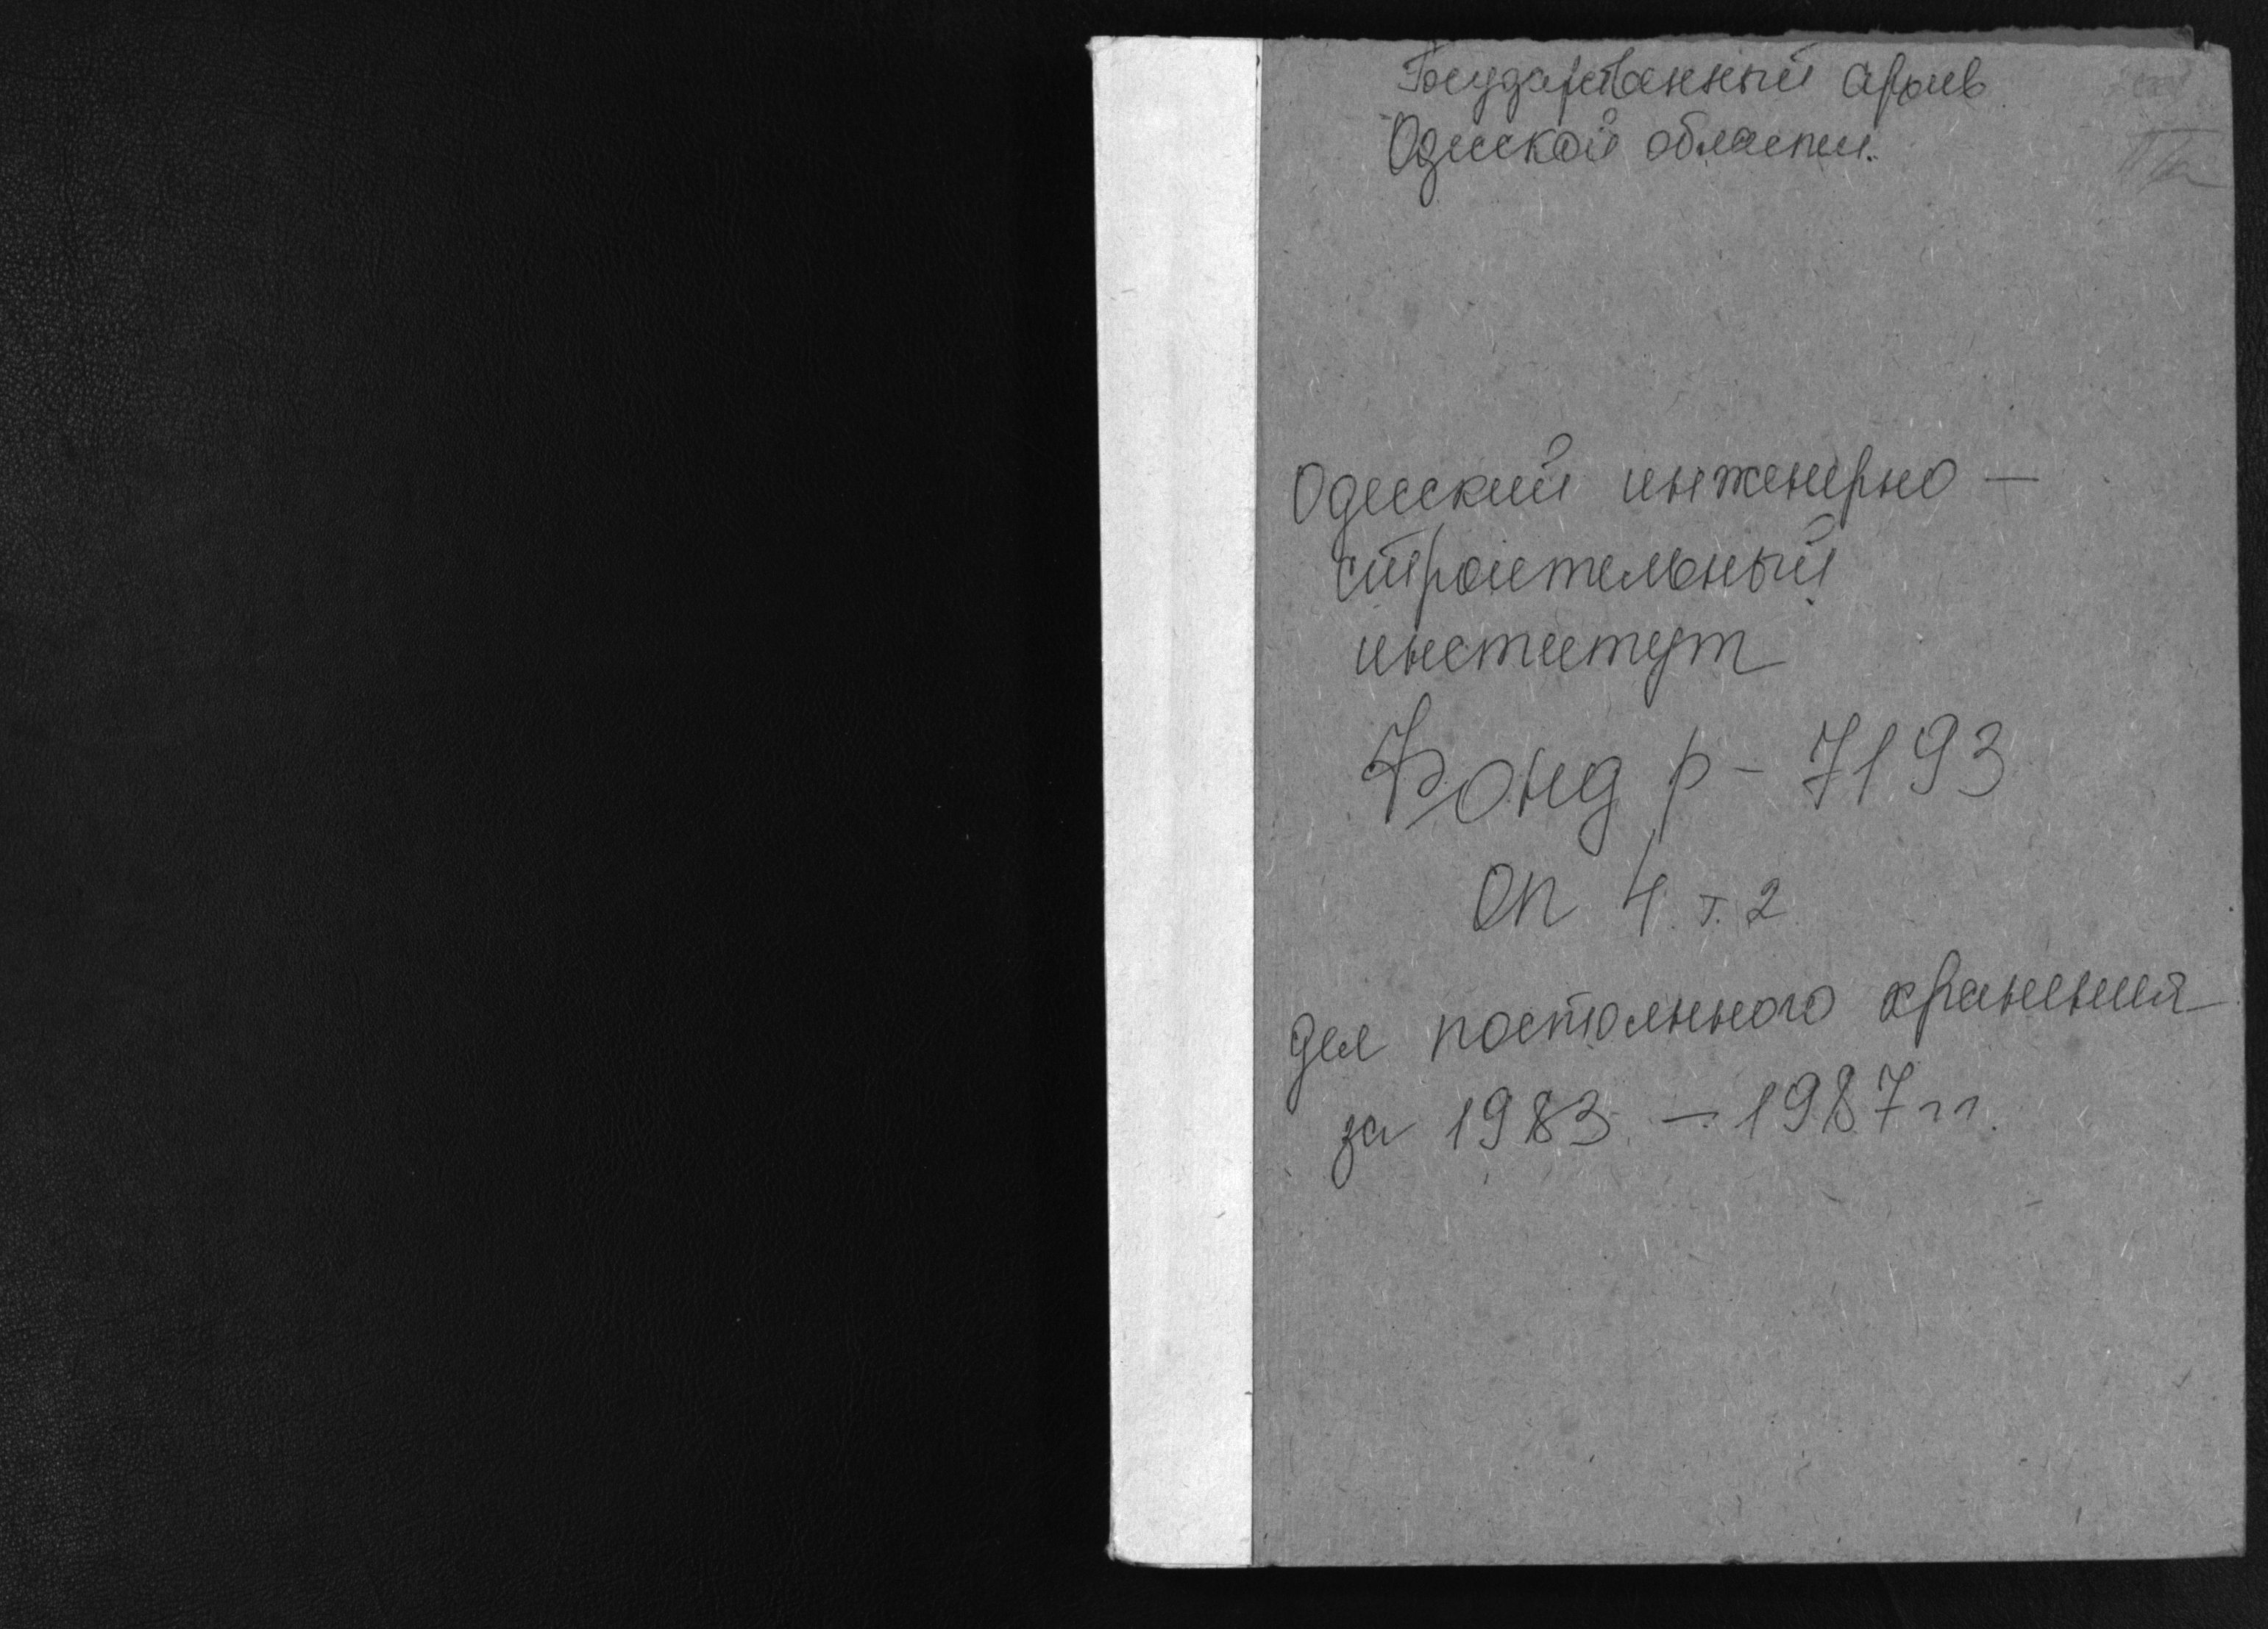 Государственный архив
Одесской области.
Одесский инженерно —
строительный
институт
Фонд р - 7193
оп 4. т. 2
дел постоянного хранения
за 1983 — 1987 гг.